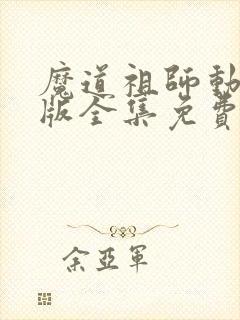 魔道祖師動
版全集免費
余亞軍